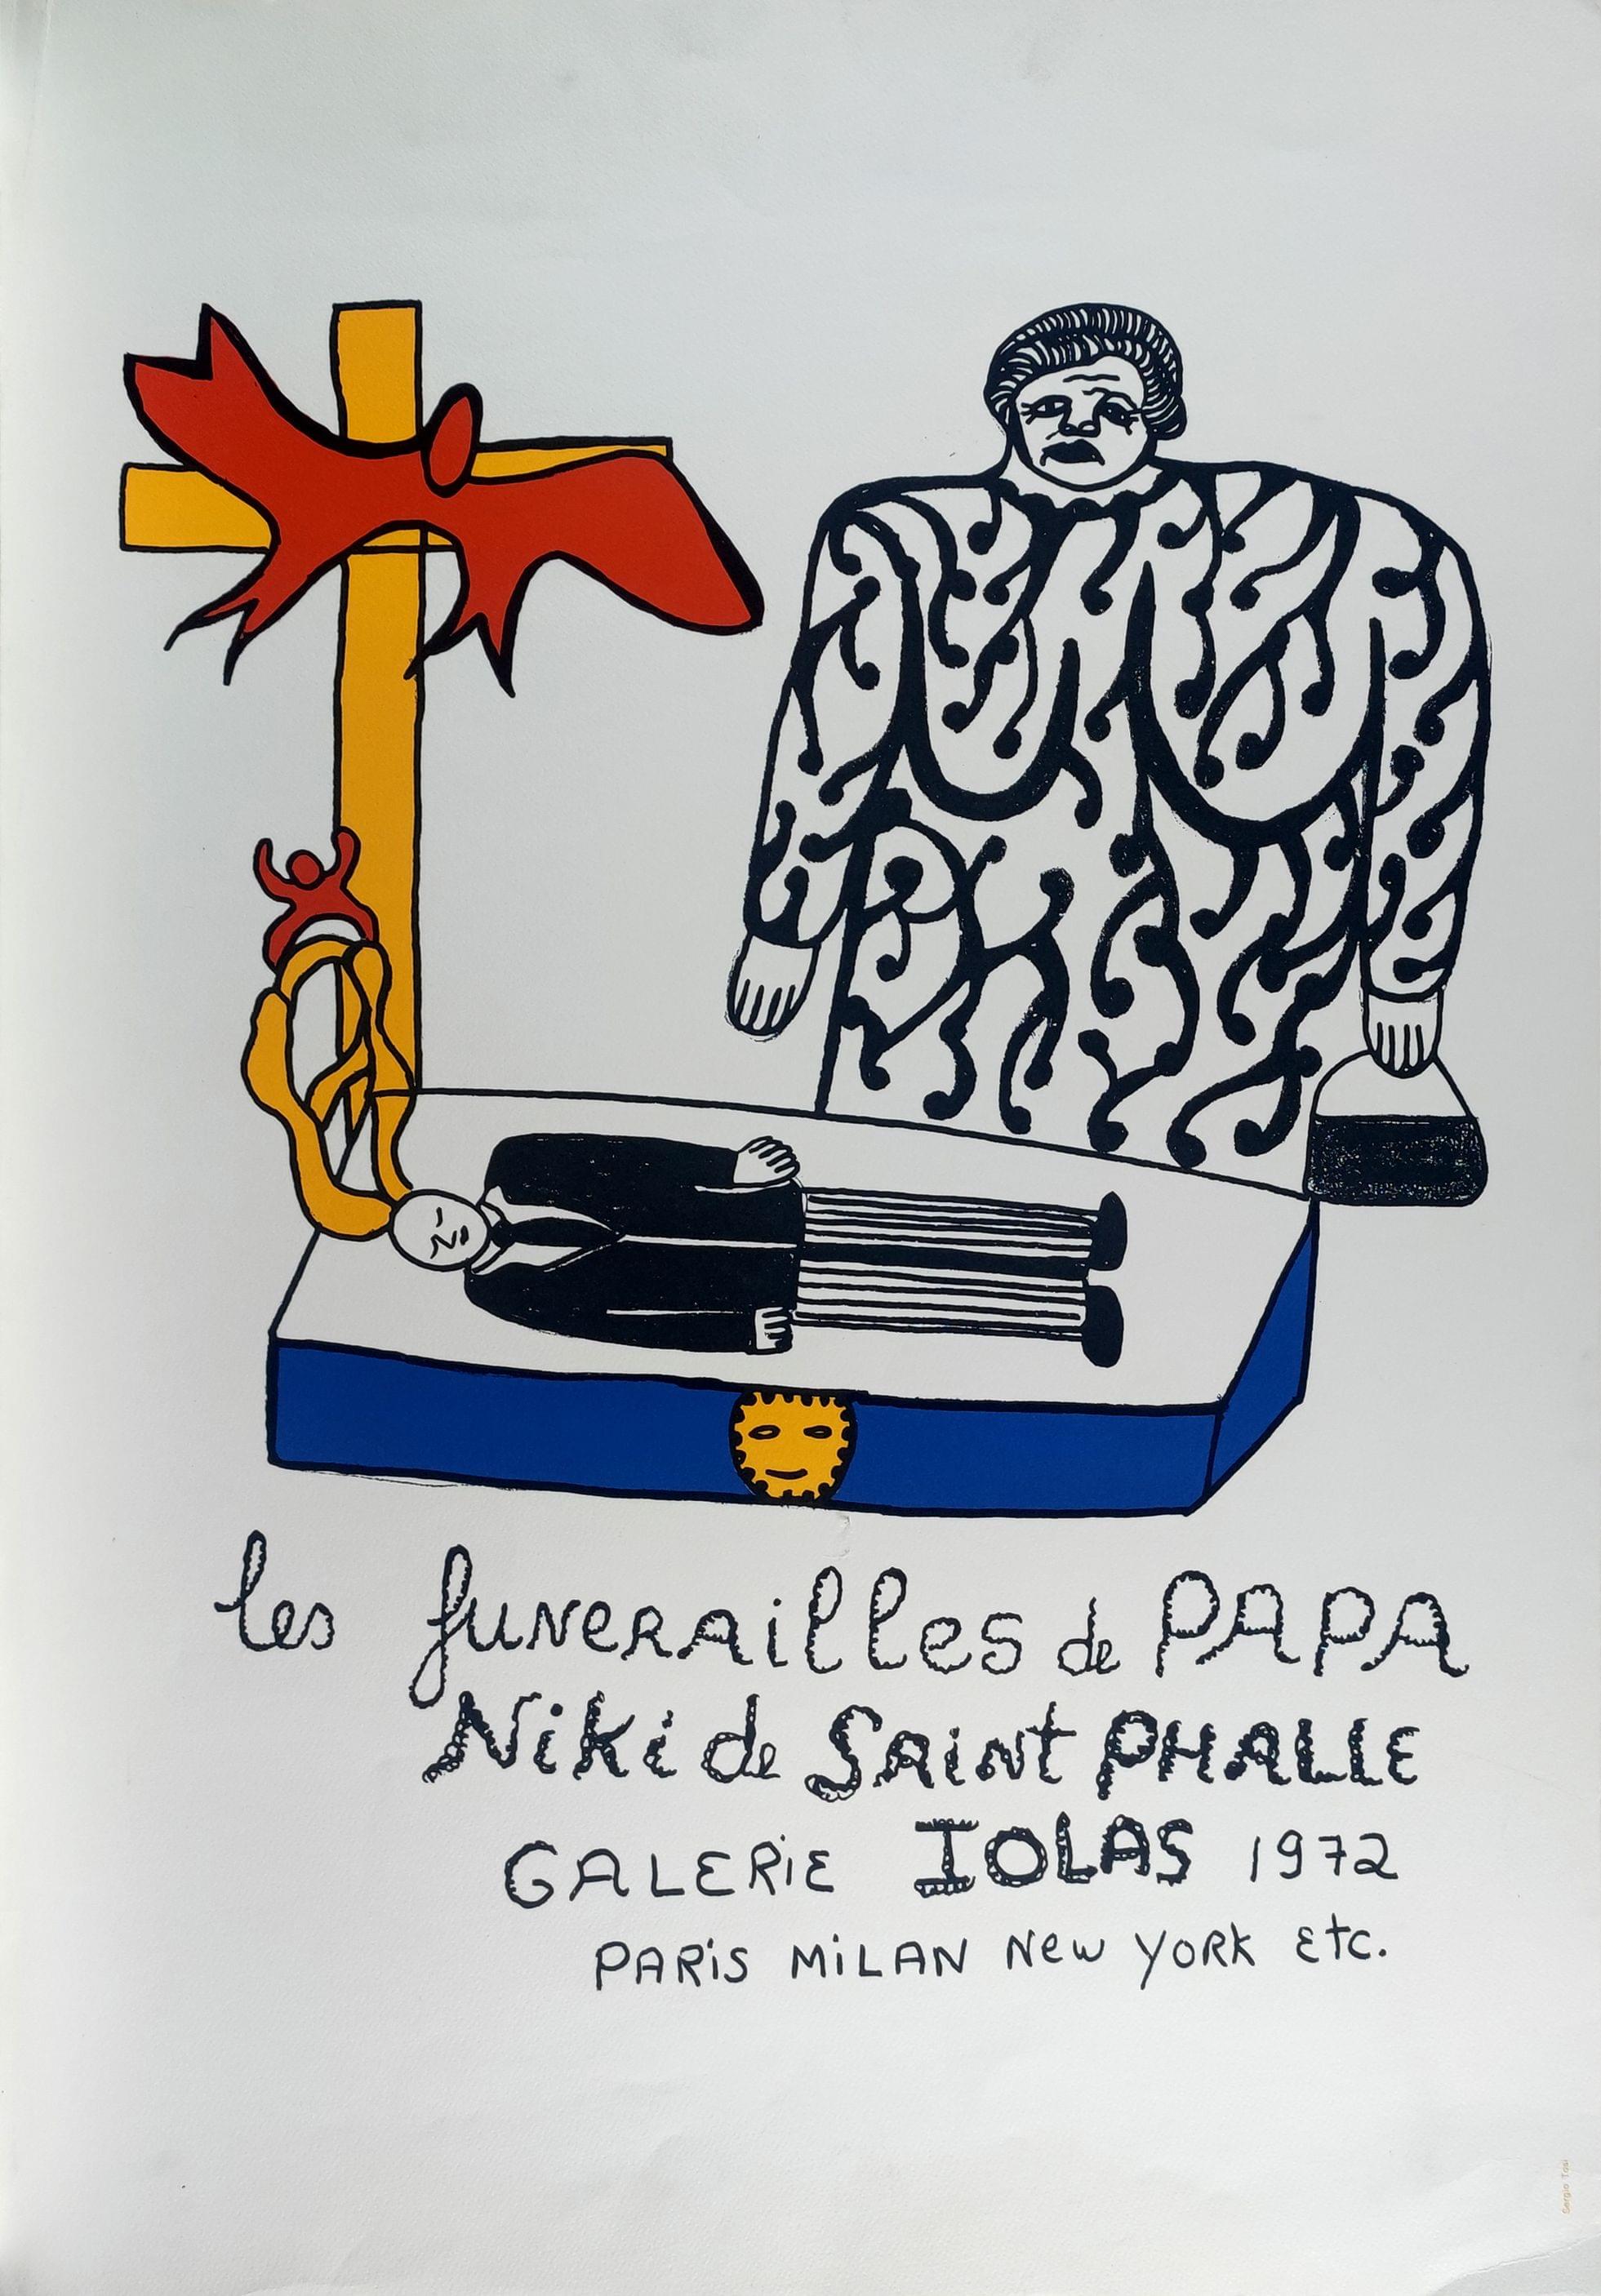 les funerailles de PAPA
Niki de Saint PHALLE
GALERiE IOLAS 1972
PARiS MiLAN New YORK Etc.
Sergio Tosi